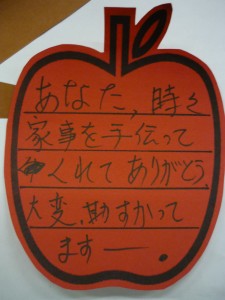 あなた,時々
家事を手伝って
くれてありがとう.
大変,助すかって
ますー.